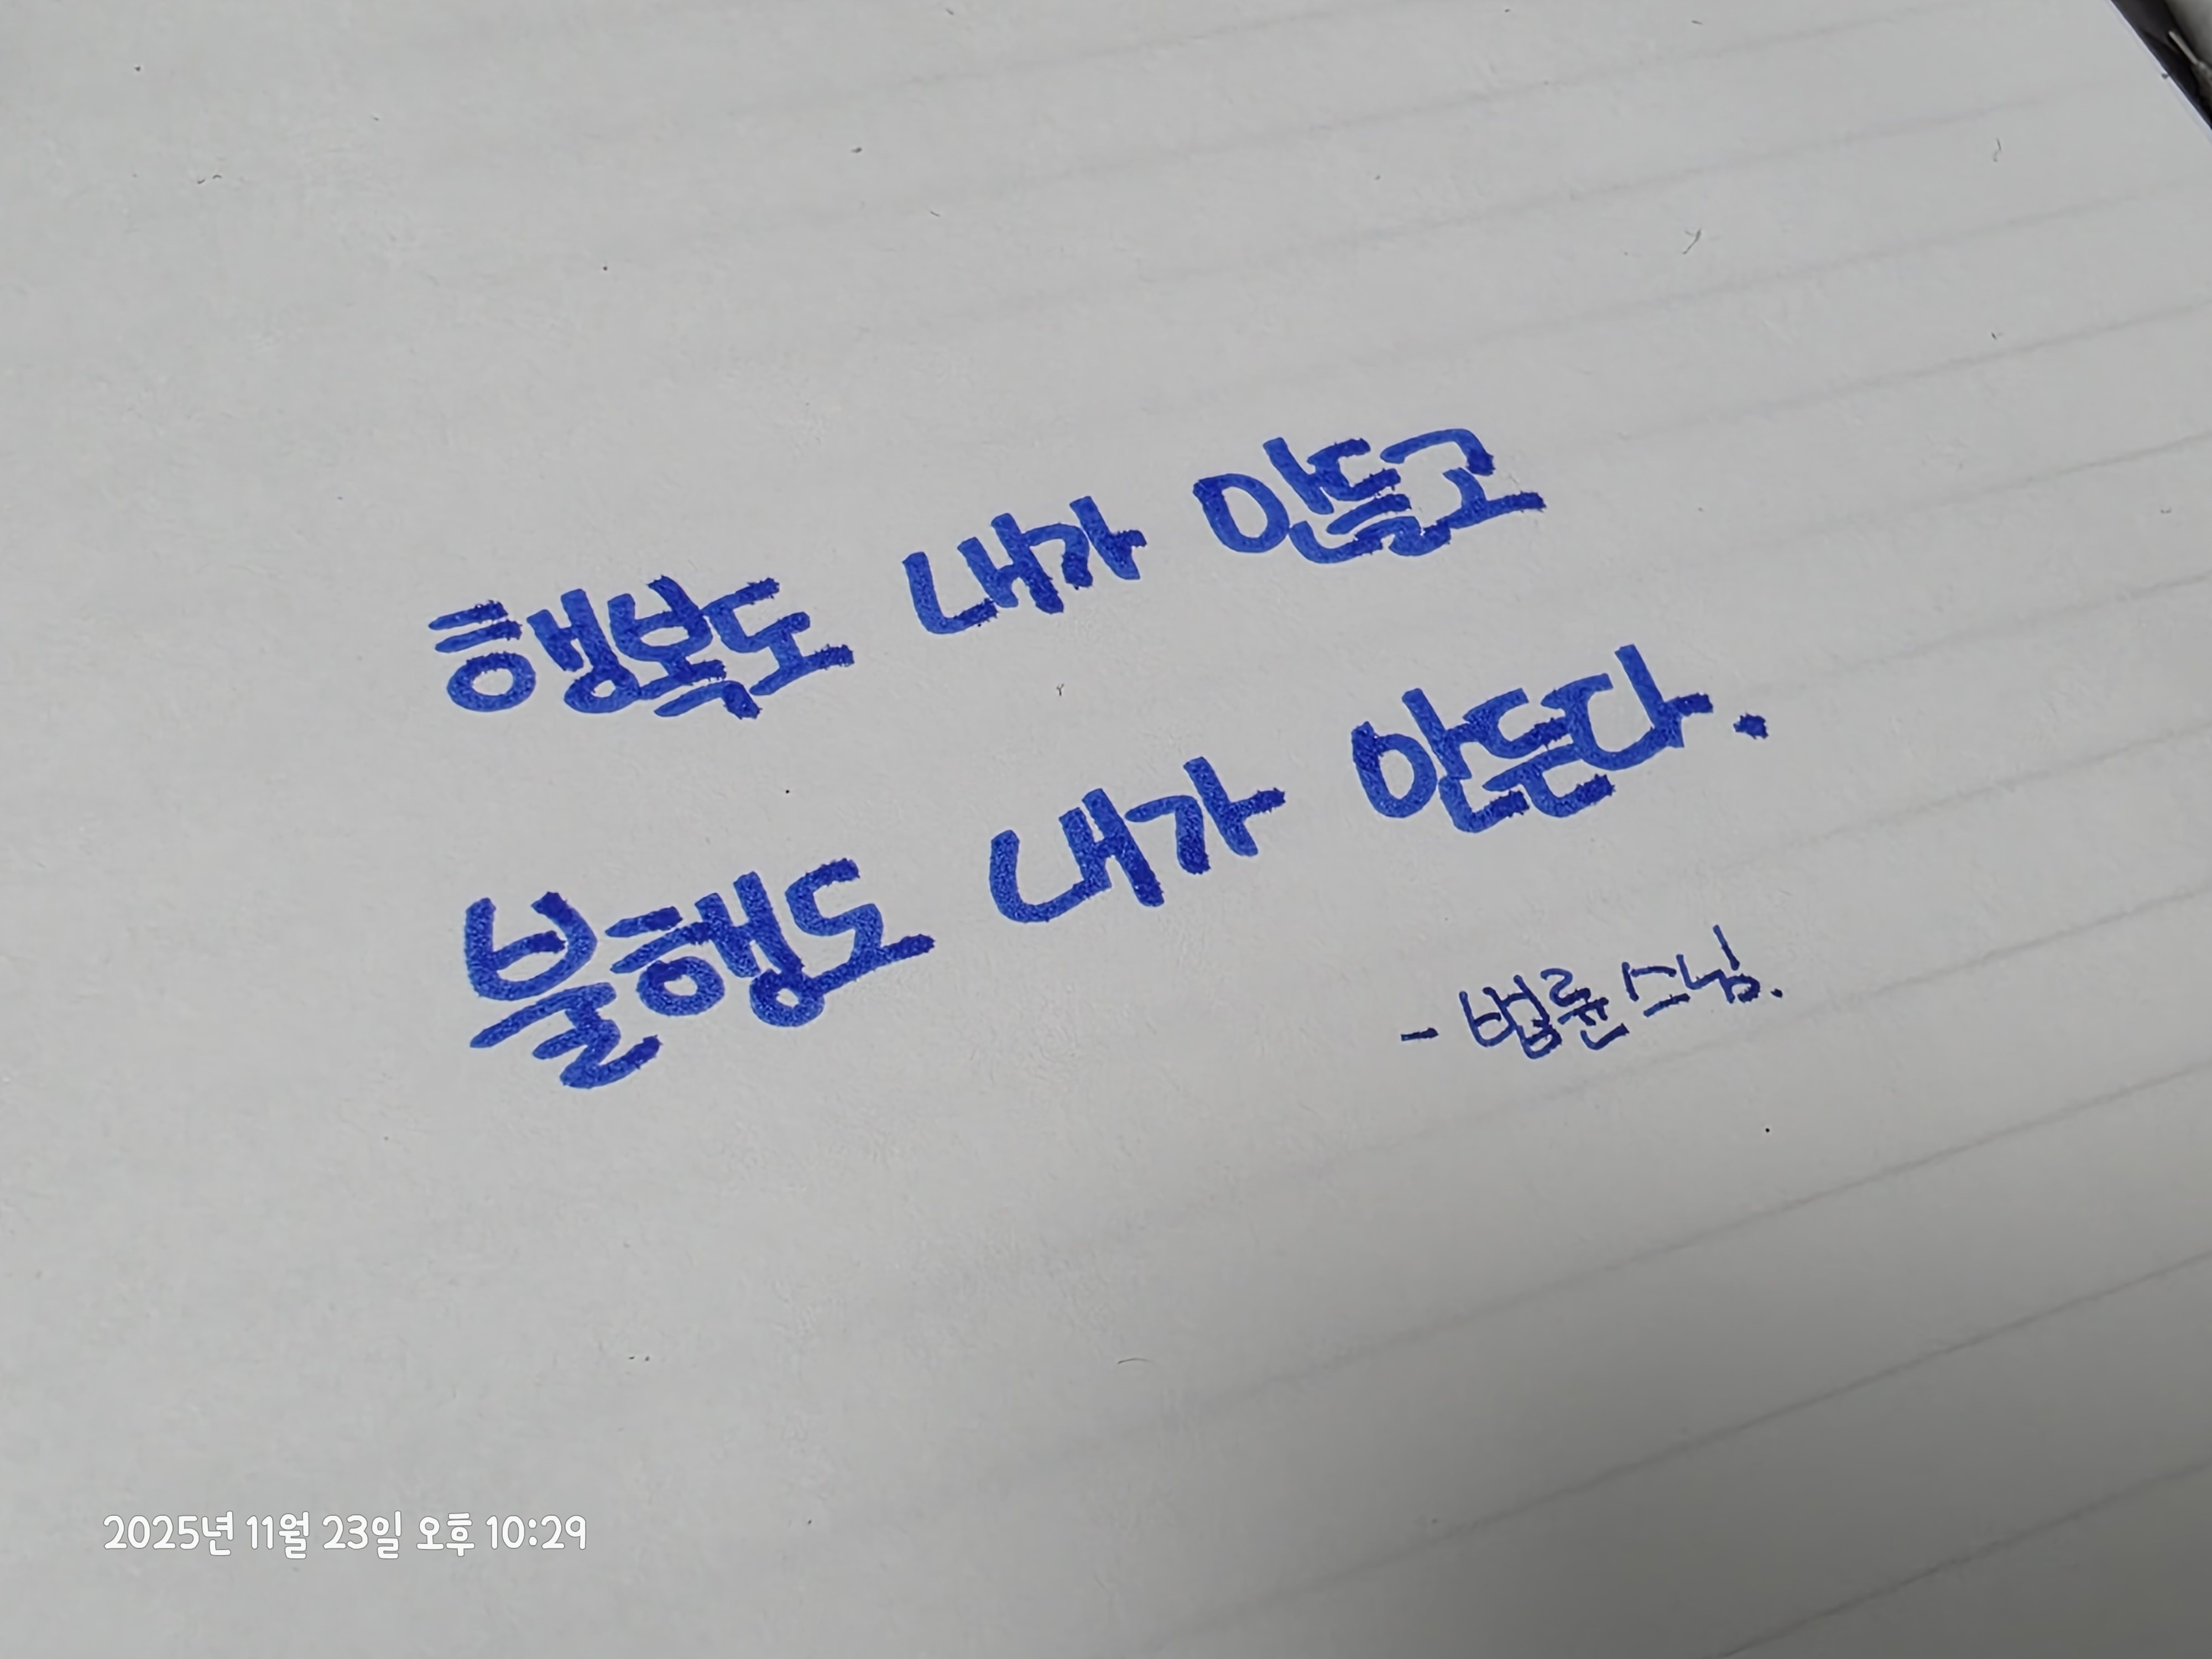 행복도 내가 만들고
불행도 내가 만든다.
- 법륜 스님.
2025년 11월 23일 오후 10:29